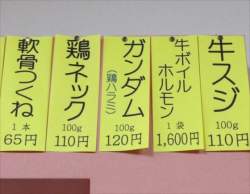 牛スジ
100g
110円
牛ボイル
ホルモン
1袋
1,600円
ガンダム
(鶏ハラミ)
100g
120円
鶏ネック
100g
110円
軟骨つくね
1本
65円